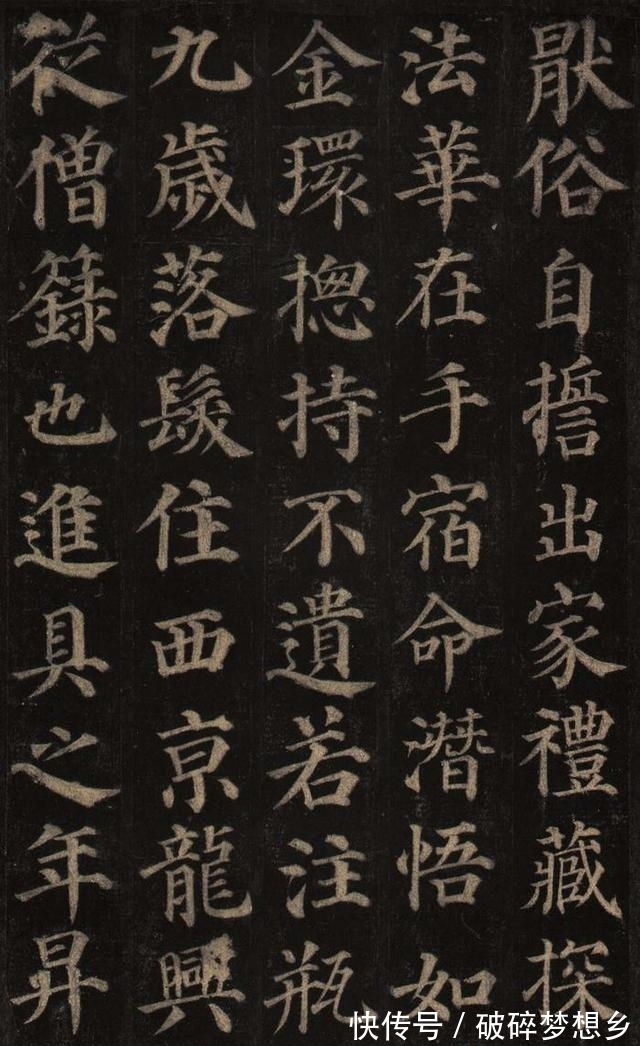 厭俗自誓出家禮藏探
法華在手宿命潛悟如
金環揔持不遺若注瓶
九歲落髮住西京龍興
從僧籙也進具之年昇
快传号 / 破碎梦想乡